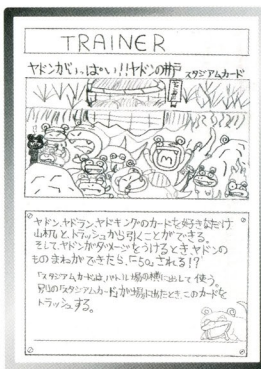 TRAINER
ヤドンがいっぱい!!ヤドンの井戸
スタジアムカード
ヤドン、ヤドラン、ヤドキングのカードを好きなだけ
山札と、トラッシュから引くことができる。
そして、ヤドンがダメージをうけるときヤドンの
ものまねができたら、「-50」される!?
「スタジアムカード」は、バトル場の横に出して使う。
別の「スタジアムカード」が場に出たとき、このカードを
トラッシュする。